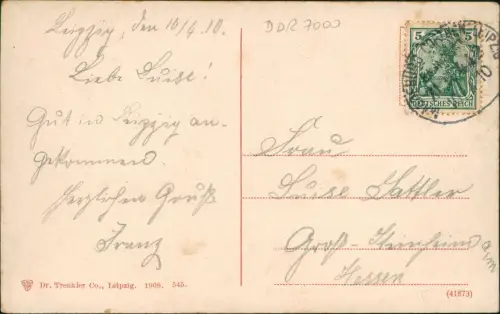 Leipzig, den 10/4.10.
DDR 7000
Liebe Luise!
Gut in Leipzig an-
gekommen.
Herzlichen Gruß
Franz
5 5
DEUTSCHES REICH
LEIPZ
10
Frau
Luise Sattler
Groß-
Hessen
Dr. Trenkler Co., Leipzig. 1908. 545.
(41873)